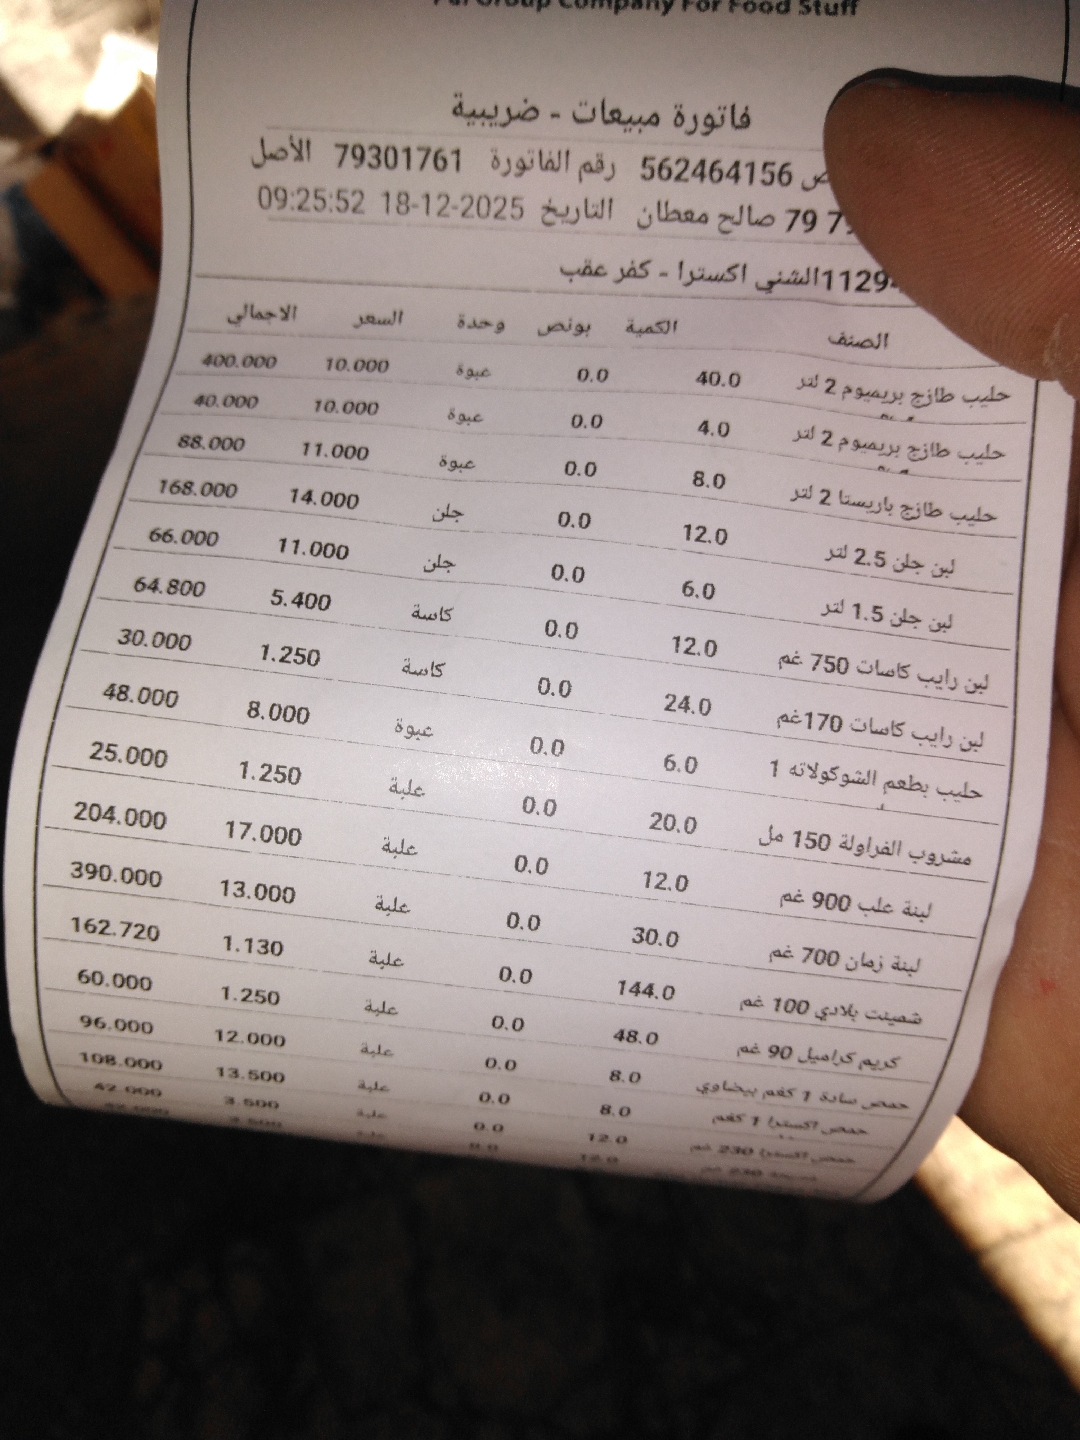 Group Company For Food Stuff
فاتورة مبيعات - ضريبية
562464156 رقم الفاتورة 79301761 الأصل
79 صالح معطان التاريخ 18-12-2025 09:25:52
الشني اكسترا - كفر عقب
الصنف الكمية بونص وحدة السعر الاجمالي
حليب طازج بريميوم 2 لتر 40.0 0.0 عبوة 10.000 400.000
حليب طازج بريميوم 2 لتر 4.0 0.0 عبوة 10.000 40.000
حليب طازج باريستا 2 لتر 8.0 0.0 عبوة 11.000 88.000
لبن جلن 2.5 لتر 12.0 0.0 جلن 14.000 168.000
لبن جلن 1.5 لتر 6.0 0.0 جلن 11.000 66.000
لبن رايب كاسات 750 غم 12.0 0.0 كاسة 5.400 64.800
لبن رايب كاسات 170غم 24.0 0.0 كاسة 1.250 30.000
حليب بطعم الشوكولاته 1 6.0 0.0 عبوة 8.000 48.000
مشروب الفراولة 150 مل 20.0 0.0 علبة 1.250 25.000
لبنة علب 900 غم 12.0 0.0 علبة 17.000 204.000
لبنة زمان 700 غم 30.0 0.0 علبة 13.000 390.000
شمينت بلادي 100 غم 144.0 0.0 علبة 1.130 162.720
كريم كراميل 90 غم 48.0 0.0 علبة 1.250 60.000
حمص سادة 1 كغم بيضاوي 8.0 0.0 علبة 12.000 96.000
حمص اكسترا 1 كغم 8.0 0.0 علبة 13.500 108.000
حمص اكسترا 230 غم 12.0 0.0 علبة 3.500 42.000
230 غم 12.0 0.0 علبة